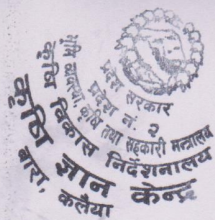 प्रदेश सरकार
प्रदेश नं. २
भूमि व्यवस्था, कृषि तथा सहकारी मन्त्रालय
कृषि विकास निर्देशनालय
कृषि ज्ञान केन्द्र
बारा, कलैया